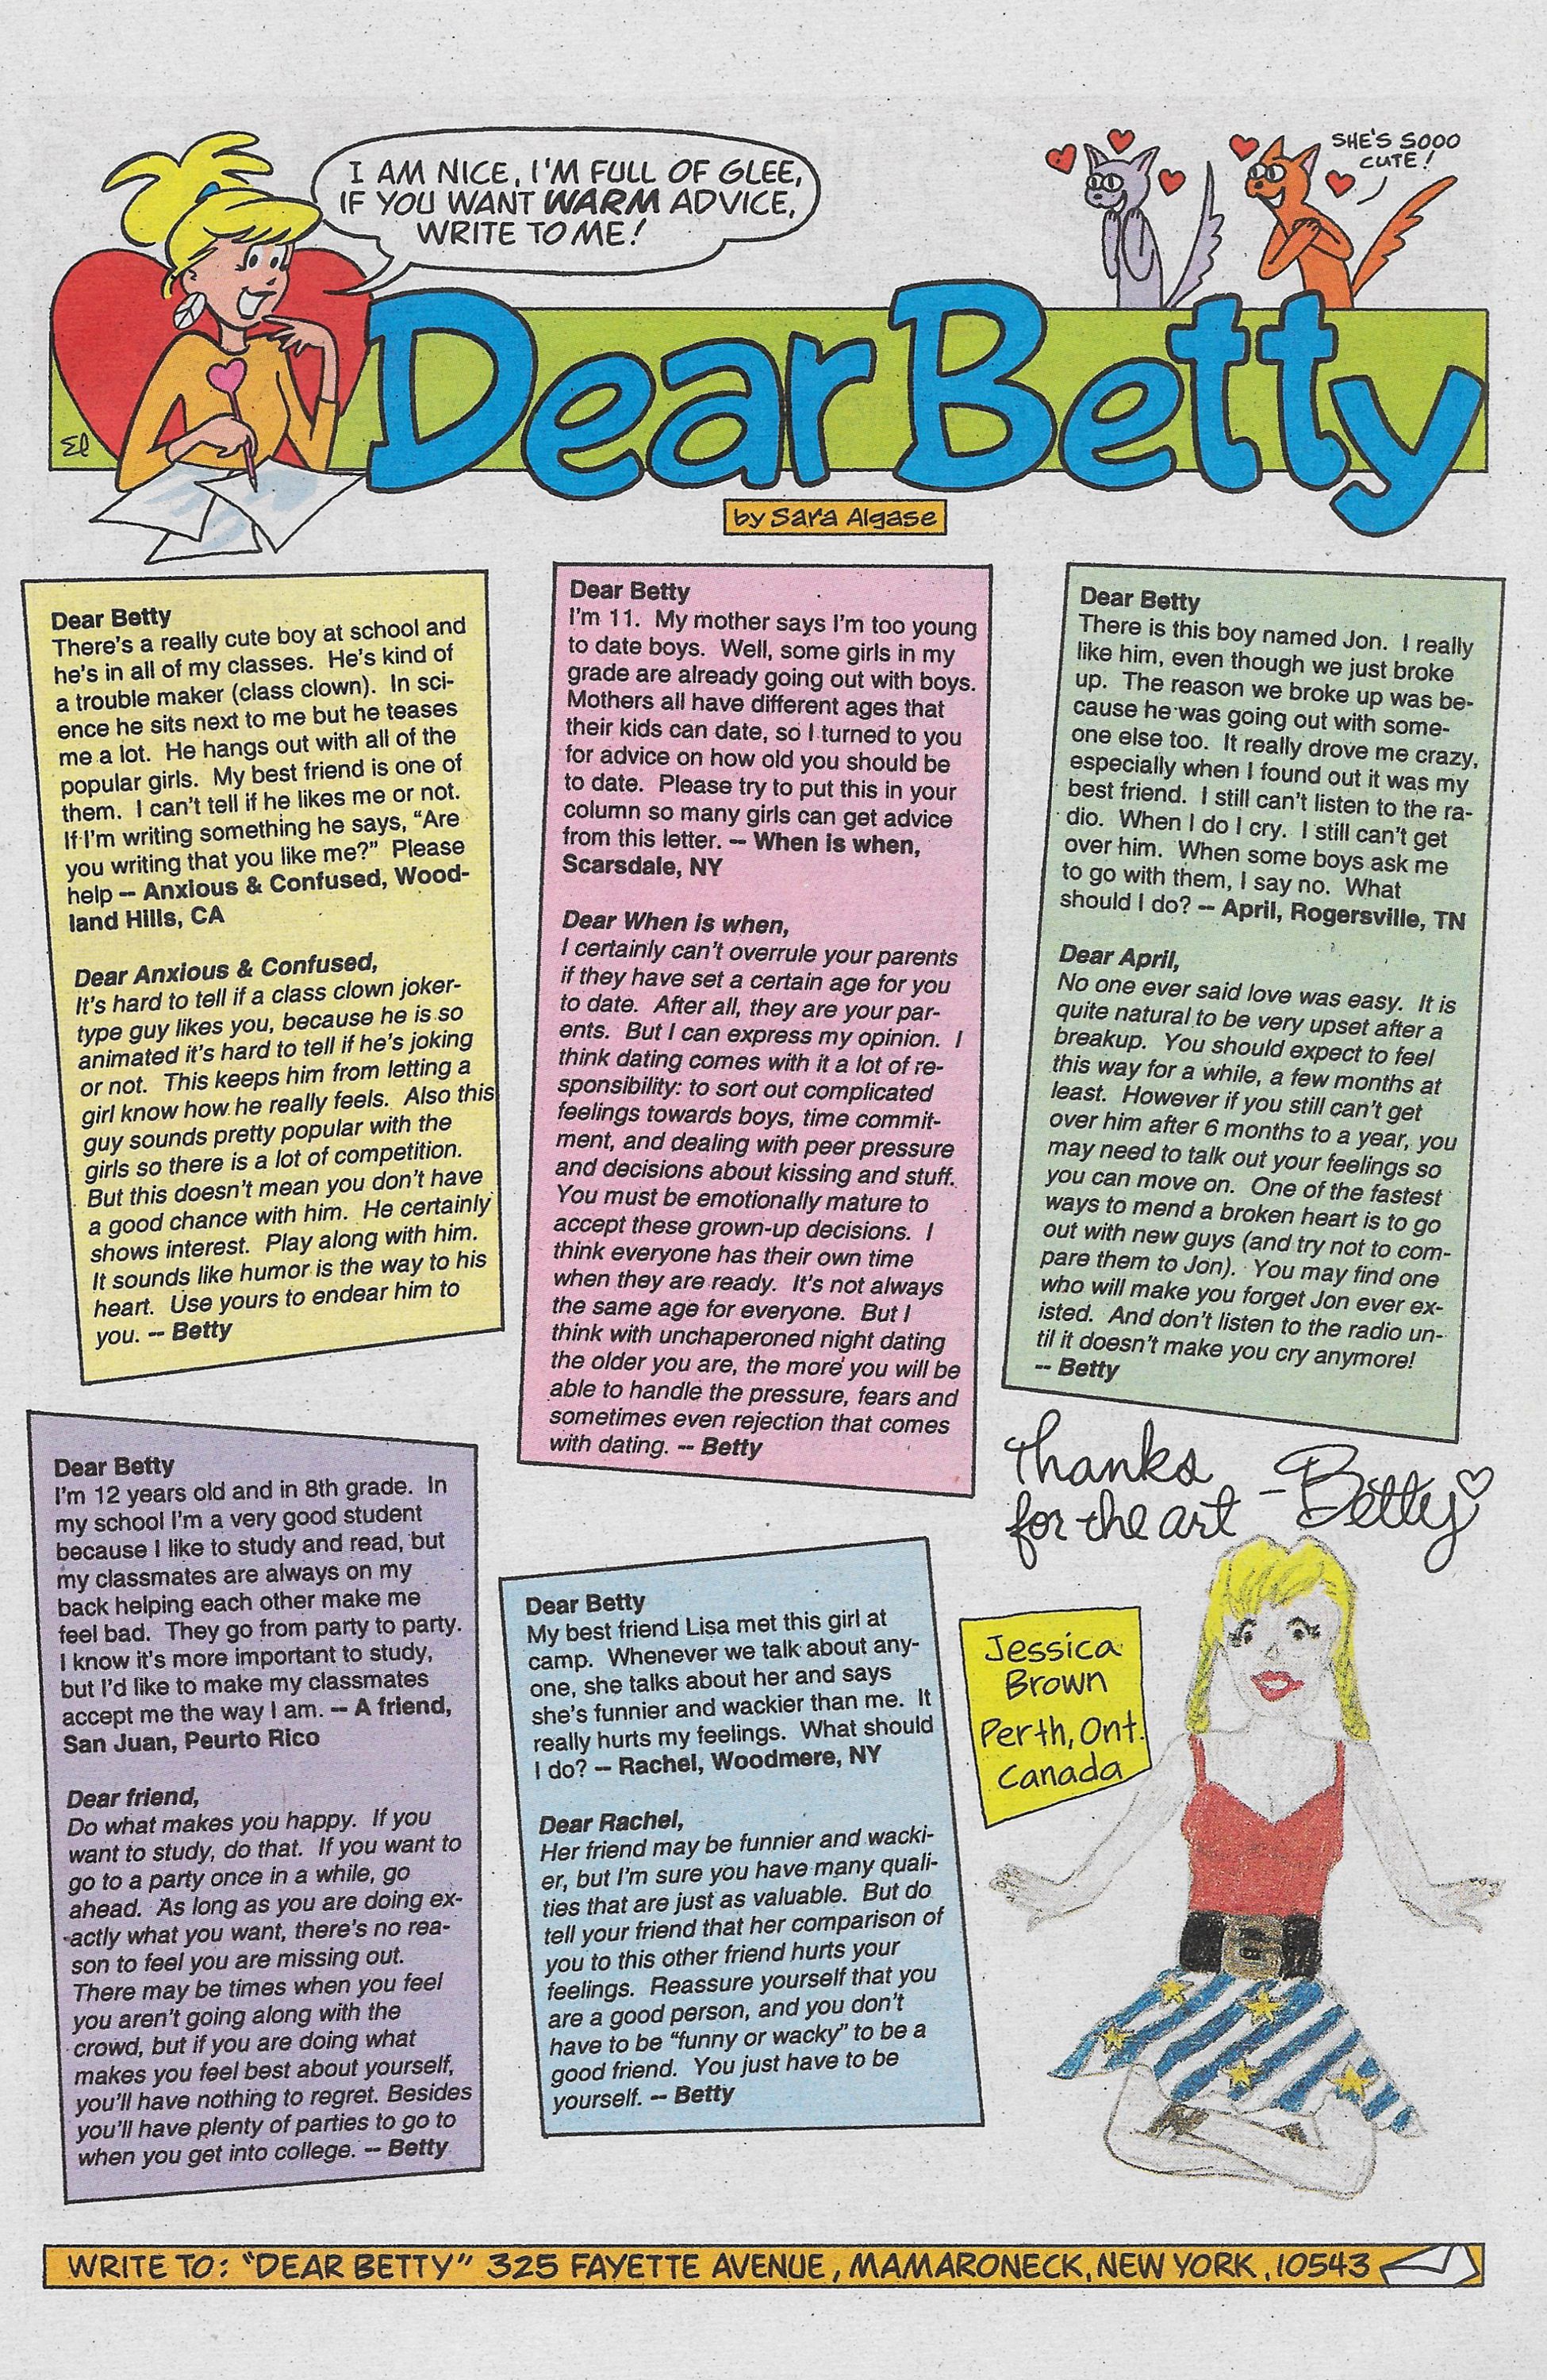 I AM NICE, I'M FULL OF GLEE,
IF YOU WANT WARM ADVICE,
WRITE TO ME!
SHE'S SOOO
CUTE!
Dear Betty
by Sara Algase
Dear Betty
There's a really cute boy at school and
he's in all of my classes. He's kind of
a trouble maker (class clown). In sci-
ence he sits next to me but he teases
me a lot. He hangs out with all of the
popular girls. My best friend is one of
them. I can't tell if he likes me or not.
If I'm writing something he says, "Are
you writing that you like me?" Please
help -- Anxious & Confused, Wood-
land Hills, CA
Dear Anxious & Confused,
It's hard to tell if a class clown joker-
type guy likes you, because he is so
animated it's hard to tell if he's joking
or not. This keeps him from letting a
girl know how he really feels. Also this
guy sounds pretty popular with the
girls so there is a lot of competition.
But this doesn't mean you don't have
a good chance with him. He certainly
shows interest. Play along with him.
It sounds like humor is the way to his
heart. Use yours to endear him to
you. -- Betty
Dear Betty
I'm 11. My mother says I'm too young
to date boys. Well, some girls in my
grade are already going out with boys.
Mothers all have different ages that
their kids can date, so I turned to you
for advice on how old you should be
to date. Please try to put this in your
column so many girls can get advice
from this letter. -- When is when,
Scarsdale, NY
Dear When is when,
I certainly can't overrule your parents
if they have set a certain age for you
to date. After all, they are your par-
ents. But I can express my opinion. I
think dating comes with it a lot of re-
sponsibility: to sort out complicated
feelings towards boys, time commit-
ment, and dealing with peer pressure
and decisions about kissing and stuff.
You must be emotionally mature to
accept these grown-up decisions. I
think everyone has their own time
when they are ready. It's not always
the same age for everyone. But I
think with unchaperoned night dating
the older you are, the more you will be
able to handle the pressure, fears and
sometimes even rejection that comes
with dating. -- Betty
Dear Betty
There is this boy named Jon. I really
like him, even though we just broke
up. The reason we broke up was be-
cause he was going out with some-
one else too. It really drove me crazy,
especially when I found out it was my
best friend. I still can't listen to the ra-
dio. When I do I cry. I still can't get
over him. When some boys ask me
to go with them, I say no. What
should I do? -- April, Rogersville, TN
Dear April,
No one ever said love was easy. It is
quite natural to be very upset after a
breakup. You should expect to feel
this way for a while, a few months at
least. However if you still can't get
over him after 6 months to a year, you
may need to talk out your feelings so
you can move on. One of the fastest
ways to mend a broken heart is to go
out with new guys (and try not to com-
pare them to Jon). You may find one
who will make you forget Jon ever ex-
isted. And don't listen to the radio un-
til it doesn't make you cry anymore!
-- Betty
Dear Betty
I'm 12 years old and in 8th grade. In
my school I'm a very good student
because I like to study and read, but
my classmates are always on my
back helping each other make me
feel bad. They go from party to party.
I know it's more important to study,
but I'd like to make my classmates
accept me the way I am. -- A friend,
San Juan, Peurto Rico
Dear friend,
Do what makes you happy. If you
want to study, do that. If you want to
go to a party once in a while, go
ahead. As long as you are doing ex-
actly what you want, there's no rea-
son to feel you are missing out.
There may be times when you feel
you aren't going along with the
crowd, but if you are doing what
makes you feel best about yourself,
you'll have nothing to regret. Besides
you'll have plenty of parties to go to
when you get into college. -- Betty
Dear Betty
My best friend Lisa met this girl at
camp. Whenever we talk about any-
one, she talks about her and says
she's funnier and wackier than me. It
really hurts my feelings. What should
I do? -- Rachel, Woodmere, NY
Dear Rachel,
Her friend may be funnier and wacki-
er, but I'm sure you have many quali-
ties that are just as valuable. But do
tell your friend that her comparison of
you to this other friend hurts your
feelings. Reassure yourself that you
are a good person, and you don't
have to be "funny or wacky" to be a
good friend. You just have to be
yourself. -- Betty
Thanks
for the art -Betty
Jessica
Brown
Perth, Ont.
Canada
WRITE TO: "DEAR BETTY" 325 FAYETTE AVENUE, MAMARONECK, NEW YORK, 10543